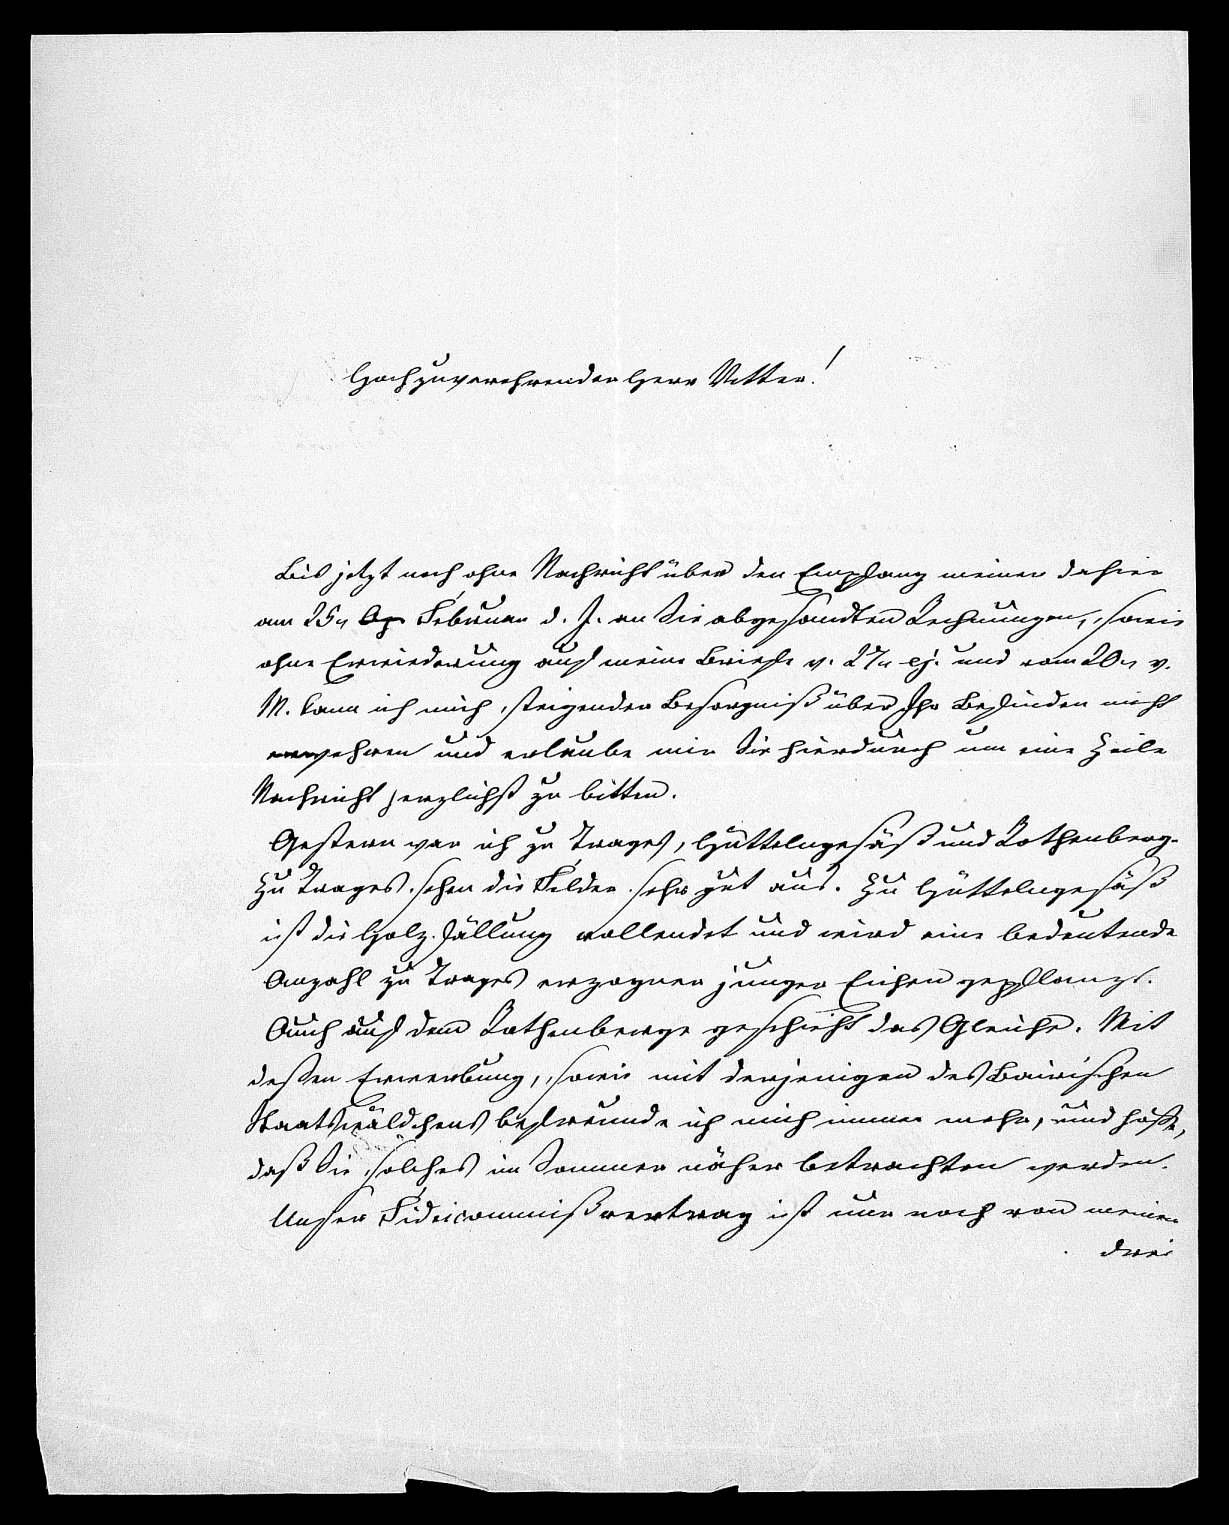 Hochzuverehrender Herr Vetter!
Bis jetzt noch ohne Nachricht über den Empfang meiner dahier
am 25n Februar d. J. an Sie abgesandten Rechnungen, sowie
ohne Erwiederung auf meine Briefe v. 27n ej. und vom 20n v.
M. kann ich mich steigender Besorgniß über Ihr Befinden nicht
erwehren und erlaube mir Sie hierdurch um eine Zeile
Nachricht herzlichst zu bitten.
Gestern war ich zu Trages, Hüttelngesäß und Rothenberg.
Zu Trages sehen die Felder sehr gut aus. Zu Hüttelngesäß
ist die Holzfällung vollendet und wird eine bedeutende
Anzahl zu Trages erzogner junger Eichen gepflanzt.
Auch auf dem Rothenberge geschieht das Gleiche. Mit
deßen Erwerbung, sowie mit derjenigen des Bairischen
Staatswäldchens befreunde ich mich immer mehr, und hoffe,
daß Sie solches im Sommer näher betrachten werden.
Unser Fideicommißvertrag ist nur noch von meinen
drei